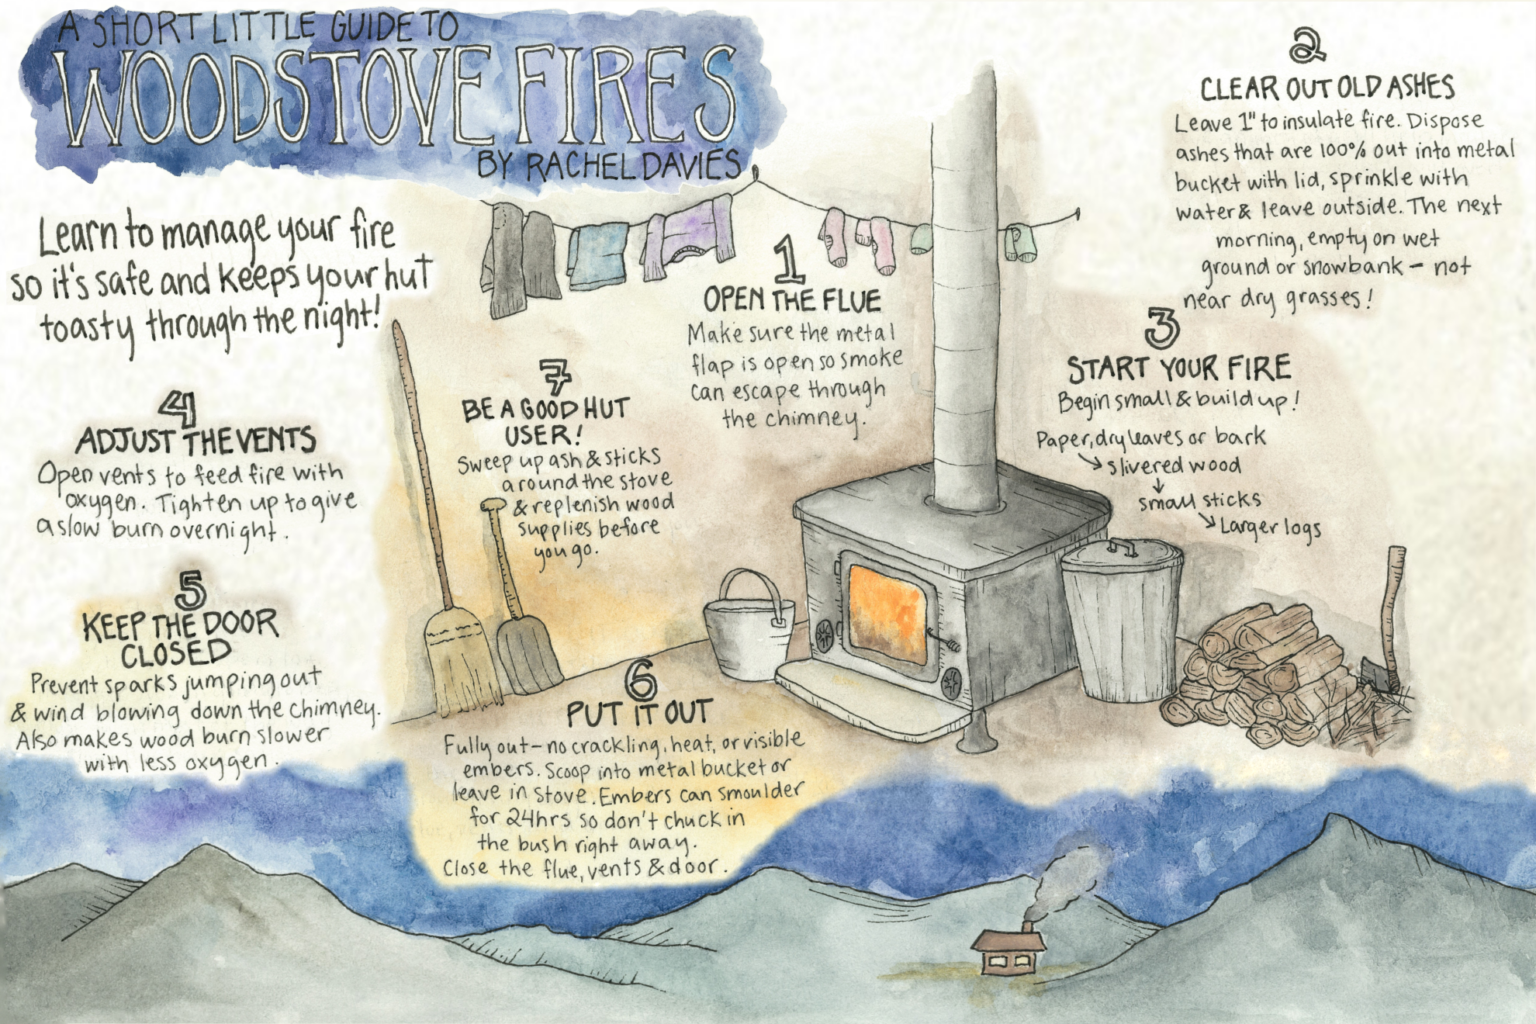 A SHORT LITTLE GUIDE TO
WOODSTOVE FIRES
BY RACHEL DAVIES
Learn to manage your fire
so it's safe and keeps your hut
toasty through the night!
1
OPEN THE FLUE
Make sure the metal
flap is open so smoke
can escape through
the chimney.
2
CLEAR OUT OLD ASHES
Leave 1" to insulate fire. Dispose
ashes that are 100% out into metal
bucket with lid, sprinkle with
water & leave outside. The next
morning, empty on wet
ground or snowbank - not
near dry grasses!
3
START YOUR FIRE
Begin small & build up!
Paper, dry leaves or bark
↘ slivered wood
↓
small sticks
↘ Larger logs
4
ADJUST THE VENTS
Open vents to feed fire with
oxygen. Tighten up to give
a slow burn overnight.
5
KEEP THE DOOR
CLOSED
Prevent sparks jumping out
& wind blowing down the chimney.
Also makes wood burn slower
with less oxygen.
6
PUT IT OUT
Fully out - no crackling, heat, or visible
embers. Scoop into metal bucket or
leave in stove. Embers can smoulder
for 24hrs so don't chuck in
the bush right away.
Close the flue, vents & door.
7
BE A GOOD HUT
USER!
Sweep up ash & sticks
around the stove
& replenish wood
supplies before
you go.